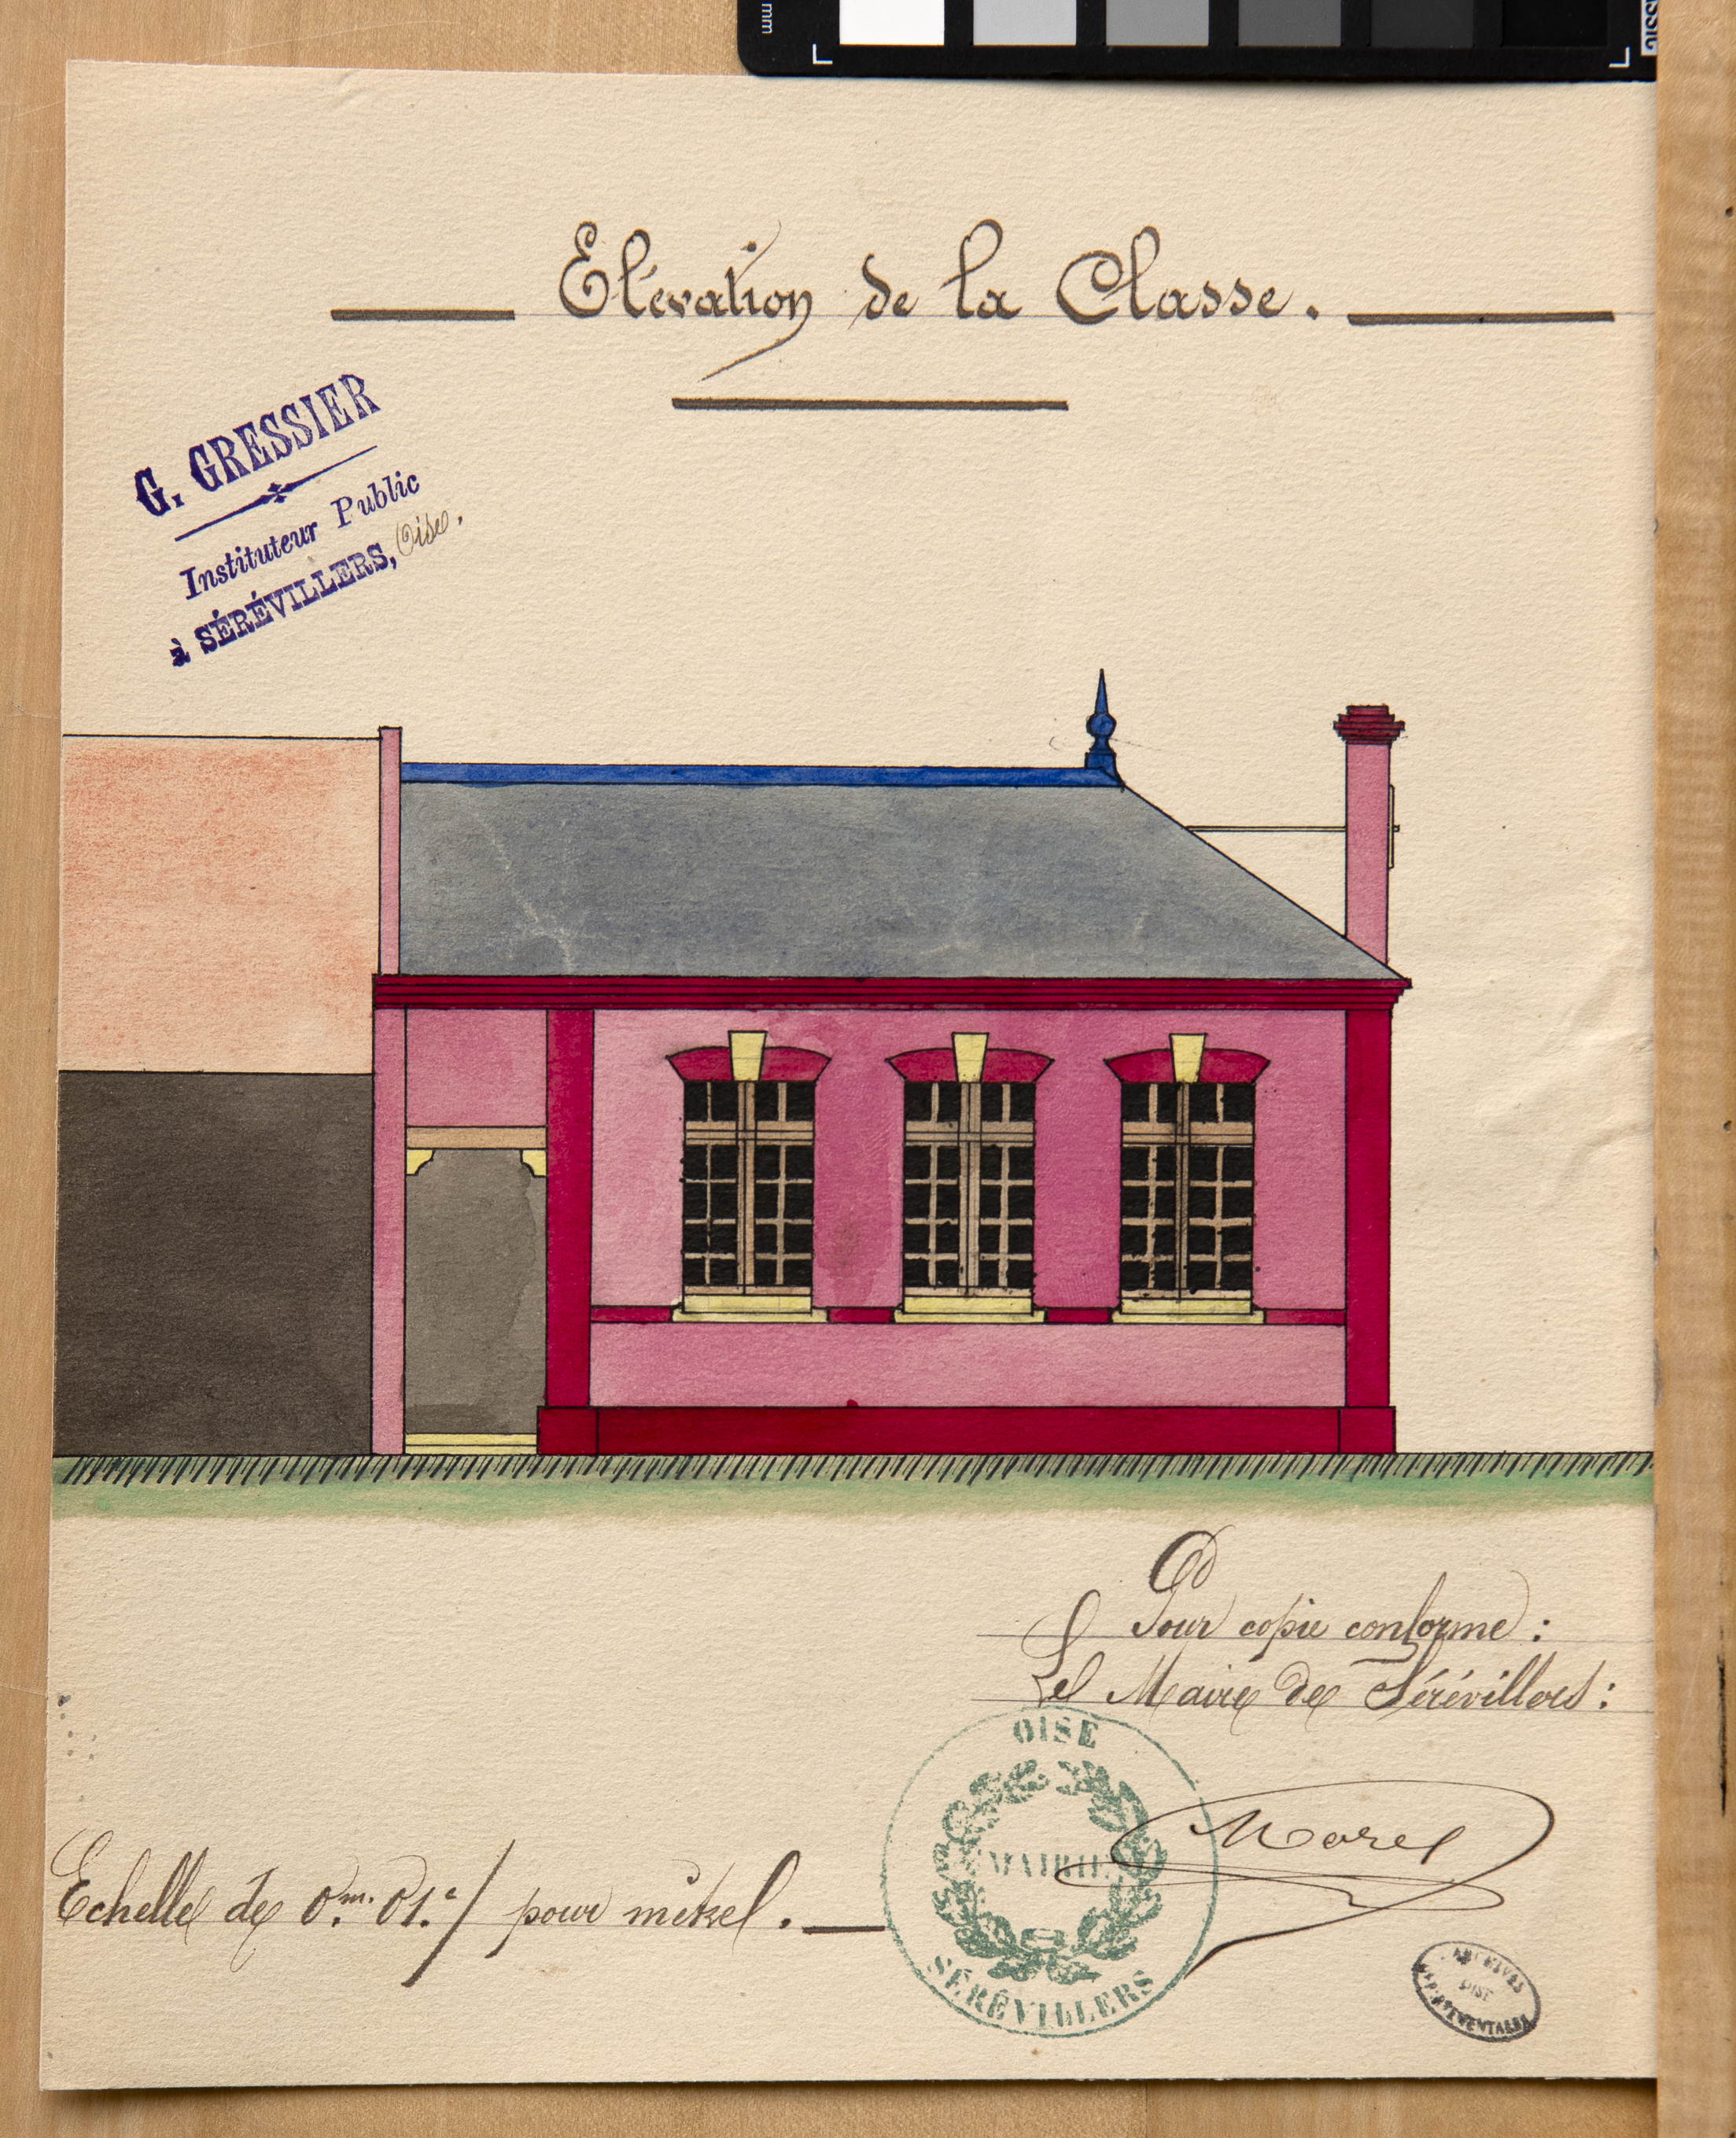 mm
Elévation de la Classe.
G. GRESSIER
Instituteur Public
à SÉRÉVILLERS, Oise.
Pour copie conforme :
Le Maire de Sérévillers :
OISE
MAIRIE
SÉRÉVILLERS
Morel
Echelle de 0.m. 01.c/ pour mètre.
ARCHIVES
OISE
DÉPARTEMENTALES